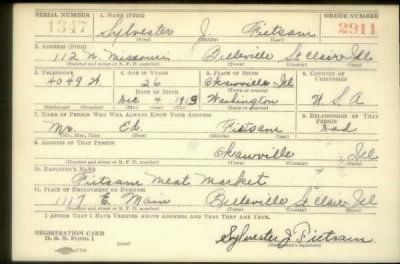 SERIAL NUMBER 1. NAME (Print) ORDER NUMBER
1347 Sylvester J. Pietsam 2911
(First) (Middle) (Last)
2. ADDRESS (Print)
112 N. Missouri Belleville St Clair Ill
(Number and street or R. F. D. number) (Town) (County) (State)
3. TELEPHONE 4. AGE IN YEARS 5. PLACE OF BIRTH 6. COUNTRY OF CITIZENSHIP
4049 W 26 Okawville Ill
DATE OF BIRTH (Town or county)
Dec 4 1913 Washington U. S. A
(Exchange) (Number) (Mo.) (Day) (Yr.) (State or country)
7. NAME OF PERSON WHO WILL ALWAYS KNOW YOUR ADDRESS 8. RELATIONSHIP OF THAT PERSON
Mr. Ed Pietsam Dad
(Mr., Mrs., Miss) (First) (Middle) (Last)
9. ADDRESS OF THAT PERSON
Okawville Ill
(Number and street or R. F. D. number) (Town) (County) (State)
10. EMPLOYER'S NAME
Pietsam Meat Market
11. PLACE OF EMPLOYMENT OR BUSINESS
1117 E. Main Belleville St Clair Ill
(Number and street or R. F. D. number) (Town) (County) (State)
I AFFIRM THAT I HAVE VERIFIED ABOVE ANSWERS AND THAT THEY ARE TRUE.
REGISTRATION CARD
D. S. S. FORM 1 Sylvester J. Pietsam
(Registrant's signature)